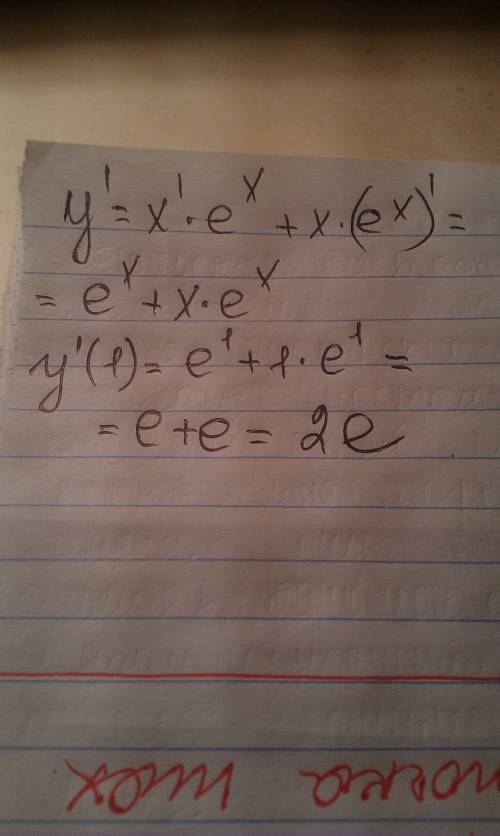 y' = x' · e^x + x · (e^x)' =
= e^x + x · e^x
y'(1) = e^1 + 1 · e^1 =
= e + e = 2e
max